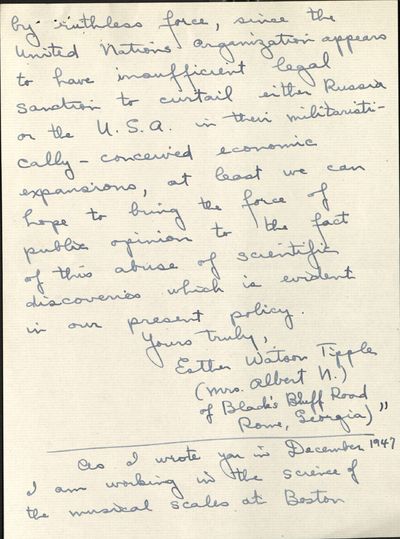 by ruthless force, since the
United Nations Organization appears
to have insufficient legal
sanction to curtail either Russia
or the U.S.A. in their militaristi-
cally-conceived economic
expansions, at least we can
hope to bring the force of
public opinion to the fact
of this abuse of scientific
discoveries which is evident
in our present policy.
Yours truly,
Esther Watson Tipple
(Mrs. Albert N.)
of Black's Bluff Road
Rome, Georgia)"
As I wrote you in December 1947
I am working in the science of
the musical scales at Boston